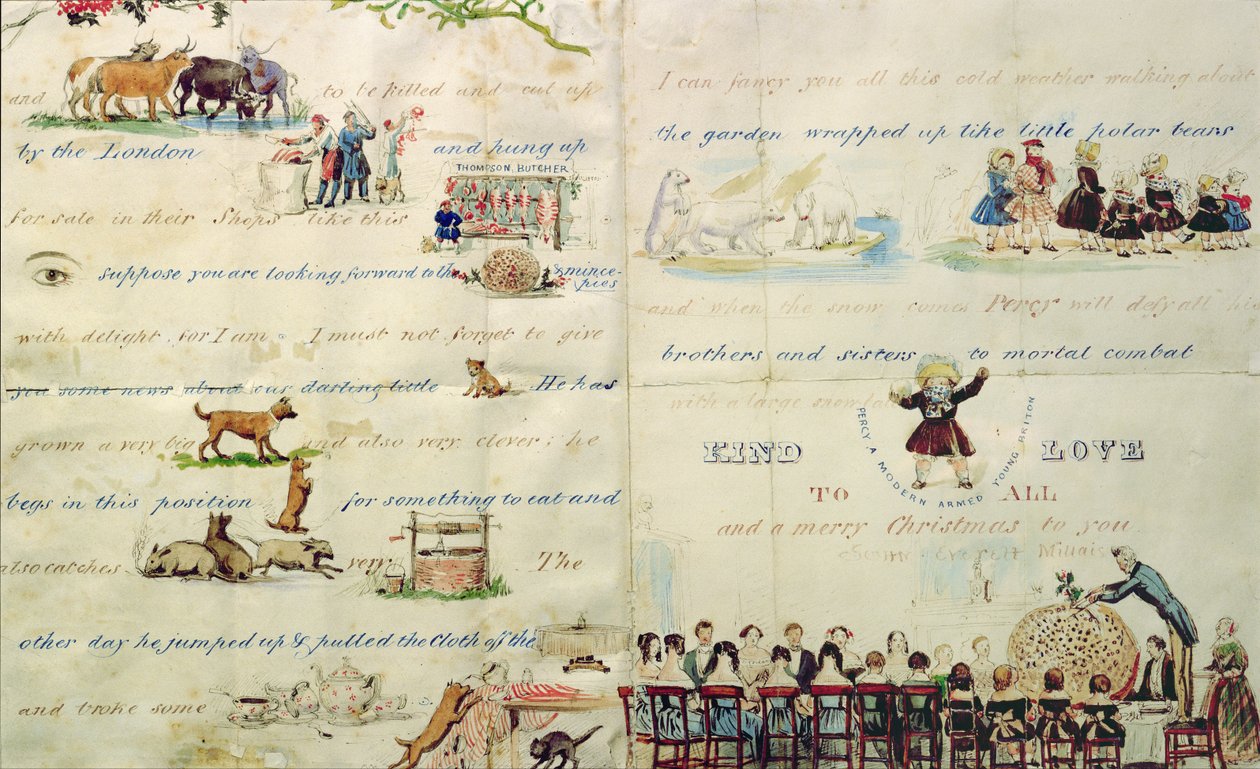 and to be killed and cut up
by the London and hung up
THOMPSON, BUTCHER
for sale in their Shops like this
suppose you are looking forward to the & mince-
pies
with delight, for I am. I must not forget to give
you some news about our darling little He has
grown a very big and also very clever; he
begs in this position for something to eat and
also catches very The
other day he jumped up & pulled the Cloth off the
and broke some
I can fancy you all this cold weather walking about
the garden wrapped up like little polar bears
and when the snow comes Percy will defy all his
brothers and sisters to mortal combat
with a large snowball
PERCY A MODERN ARMED YOUNG BRITON
KIND LOVE
TO ALL
and a merry Christmas to you
Everett Millais